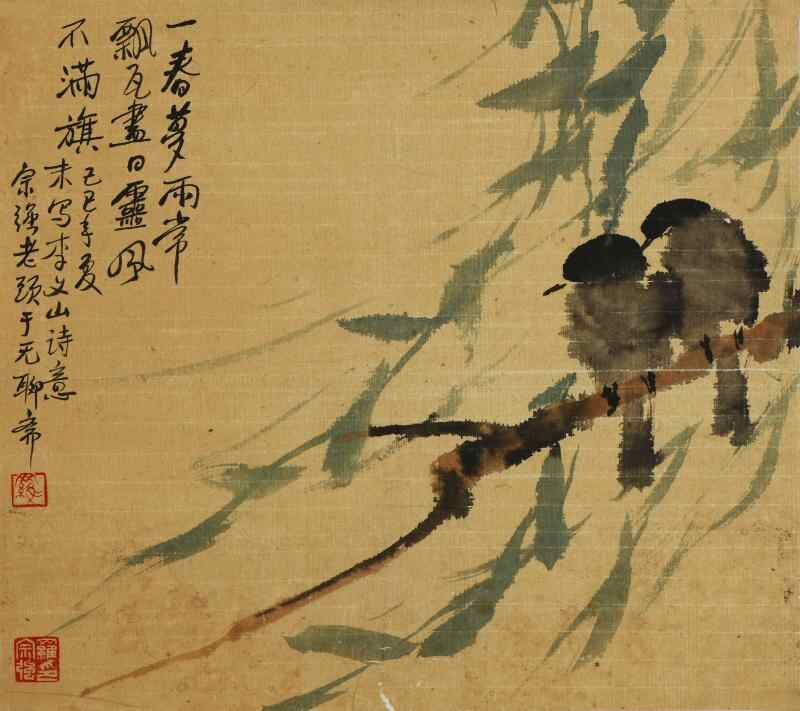 一春夢雨常
飄瓦盡日靈風
不滿旗
己巳年夏
末写李义山诗意
宗强老頭于无聊斋
羅印
宗強